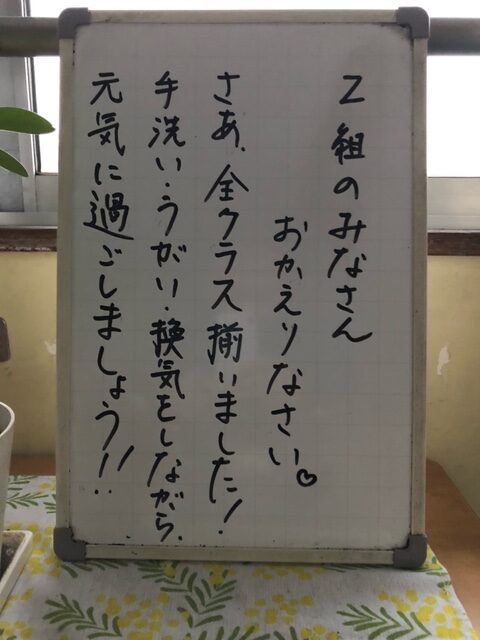 Z組のみなさん
おかえりなさい。♡
さあ、全クラス揃いました!
手洗い・うがい・換気をしながら、
元気に過ごしましょう!!